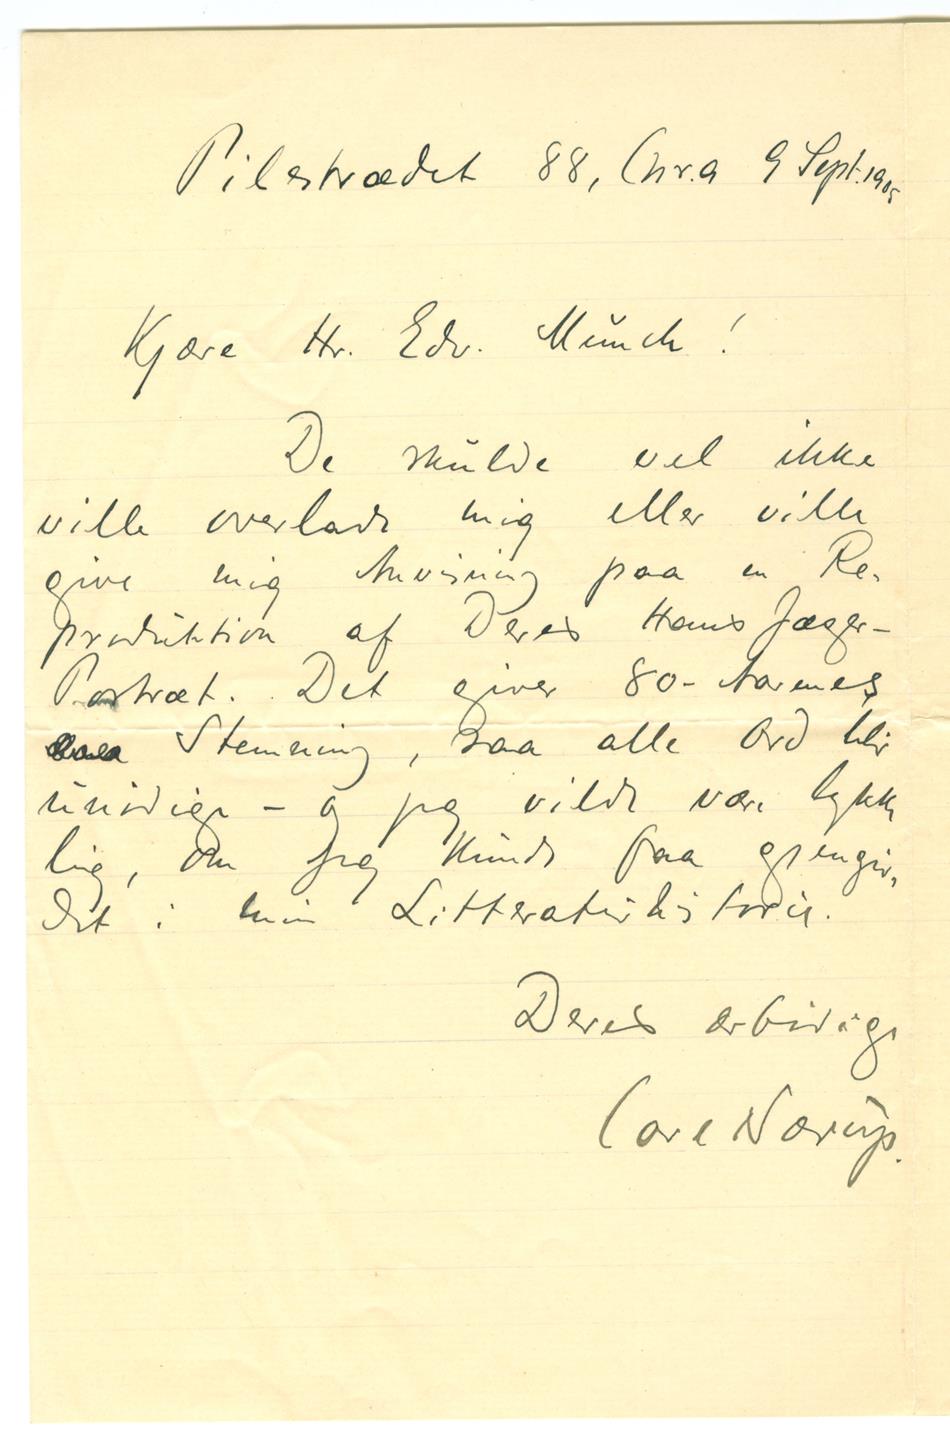 Pilestrædet 88, Chr.a 9 Sept. 1905
Kjære Hr. Edv. Munch!
De skulde vel ikke
ville overlade mig eller ville
give mig Anvisning paa en Re-
produktion af Deres Hans Jæger-
Portræt. Det giver 80-Aarenes
Stemning, saa alle Ord blir
unødige – og jeg vilde være lykke
lig, om jeg kunde faa gjengiv,
det i min Litteraturhistorie.
Deres ærbødige
Carl Nærup.